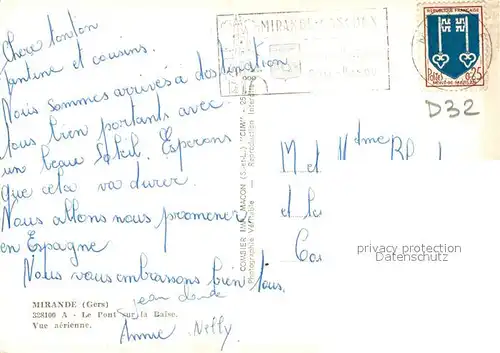 Chere tonton
tantine et cousins.
Nous sommes arrivés a destination
tous bien portants avec
un beau Soleil. Esperons
que cela va durer.
Nous allons nous promener
en Espagne
Nous vous embrassons bien tous.
Jean claude
Annie Nelly
MIRANDE (Gers)
328100 A - Le Pont sur la Baïse.
Vue aérienne.
COMBIER IMP. MACON (S.-et-L.) "CIM"
Photographie Véritable - Reproduction
REPUBLIQUE FRANÇAISE
Postes 0,25
MONT-DE-MARSAN
D32
M et Mme
et
privacy protection
DarFabrik.de